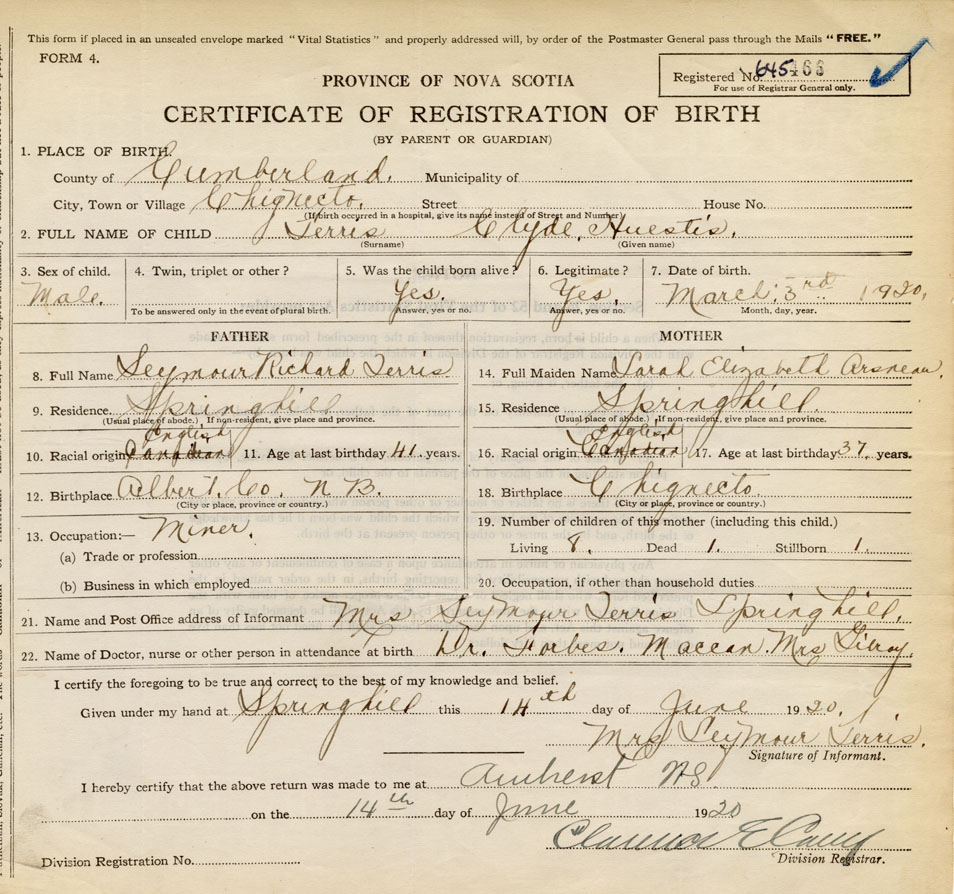 This form if placed in an unsealed envelope marked "Vital Statistics" and properly addressed will, by order of the Postmaster General pass through the Mails "FREE."
FORM 4.
Registered No. 645466
For use of Registrar General only.
PROVINCE OF NOVA SCOTIA
CERTIFICATE OF REGISTRATION OF BIRTH
(BY PARENT OR GUARDIAN)
1. PLACE OF BIRTH.
County of Cumberland. Municipality of
City, Town or Village Chignecto. Street House No.
(If birth occurred in a hospital, give its name instead of Street and Number)
2. FULL NAME OF CHILD Terris Clyde, Huestis.
(Surname) (Given name)
3. Sex of child. 4. Twin, triplet or other? 5. Was the child born alive? 6. Legitimate? 7. Date of birth.
Male. Yes. Yes. March. 3rd 1920.
To be answered only in the event of plural birth. Answer, yes or no. Answer, yes or no. Month, day, year.
FATHER MOTHER
8. Full Name Seymour Richard Terris 14. Full Maiden Name Sarah Elizabeth Arsneau.
9. Residence. Springhill 15. Residence Springhill.
(Usual place of abode.) If non-resident, give place and province. (Usual place of abode.) If non-resident, give place and province.
English English
10. Racial origin Canadian 11. Age at last birthday 41. years. 16. Racial origin Canadian 17. Age at last birthday 37. years.
12. Birthplace Albert. Co. N B. 18. Birthplace Chignecto.
(City or place, province or country.) (City or place, province or country.)
13. Occupation:— Miner. 19. Number of children of this mother (including this child.)
(a) Trade or profession Living 8. Dead 1. Stillborn 1.
(b) Business in which employed 20. Occupation, if other than household duties
21. Name and Post Office address of Informant Mrs Seymour Terris Springhill.
22. Name of Doctor, nurse or other person in attendance at birth Dr. Forbes. Maccan. Mrs Gilroy.
I certify the foregoing to be true and correct to the best of my knowledge and belief.
Given under my hand at Springhill this 14th day of June 1920.
Mrs Seymour Terris.
Signature of Informant.
I hereby certify that the above return was made to me at Amherst NS.
on the 14th day of June 1920
Clarence E
Division Registration No. Division Registrar.